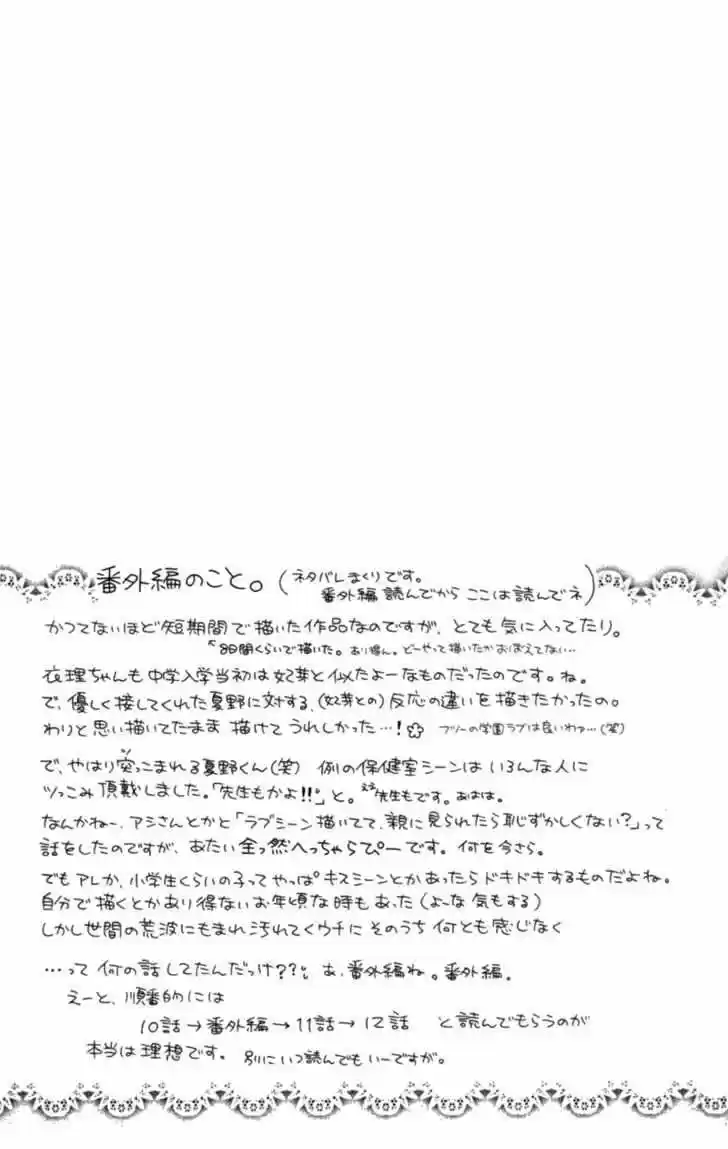 番外編のこと。(ネタバレまくりです。
番外編 読んでから ここは読んでネ)
かつてないほど短期間で描いた作品なのですが、とても気に入ってたり。
8日間くらいで描いた。あり得ん。どーやって描いたかおぼえてない…
衣理ちゃんも中学入学当初は妃芽と似たよーなものだったのです。ね。
で、優しく接してくれた夏野に対する、(妃芽との)反応の違いを描きたかったの。
わりと思い描いてたまま 描けて うれしかった…! フツーの学園ラブは良いわァ…(笑)
で、やはり突っこまれる夏野くん(笑) 例の保健室シーンは いろんな人に
ツっこみ頂戴しました。「先生もかよ!!」と。ええ先生もです。あはは。
なんかねー、アシさんとかと「ラブシーン描いてて、親に見られたら恥ずかしくない?」って
話をしたのですが、あたい全っ然へっちゃらぴーです。何を今さら。
でもアレか、小学生くらいの子ってやっぱキスシーンとかあったらドキドキするものだよね。
自分で描くとかあり得ないお年頃な時もあった(よーな気もする)
しかし世間の荒波にもまれ汚れてくウチに そのうち 何とも感じなく
…って 何の話してたんだっけ??; あ、番外編ね。番外編。
えーと、順番的には
10話→番外編→11話→12話 と読んでもらうのが
本当は理想です。別にいつ読んでもいーですが。